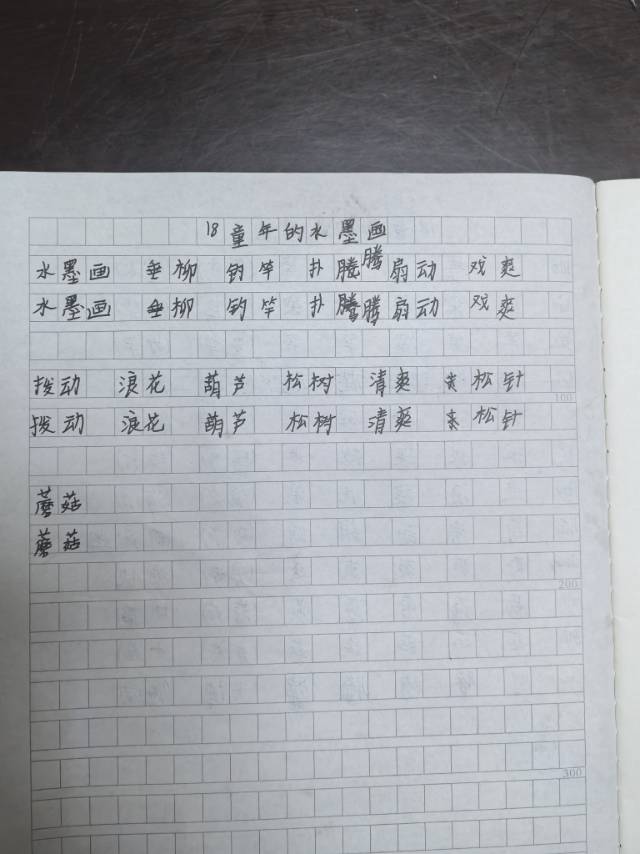 18童年的水墨画
水墨画 垂柳 钓竿 扑腾腾 扇动 戏爽
水墨画 垂柳 钓竿 扑腾腾 扇动 戏爽
拨动 浪花 葫芦 松树 清爽 松针
拨动 浪花 葫芦 松树 清爽 松针
100
蘑菇
蘑菇
200
300